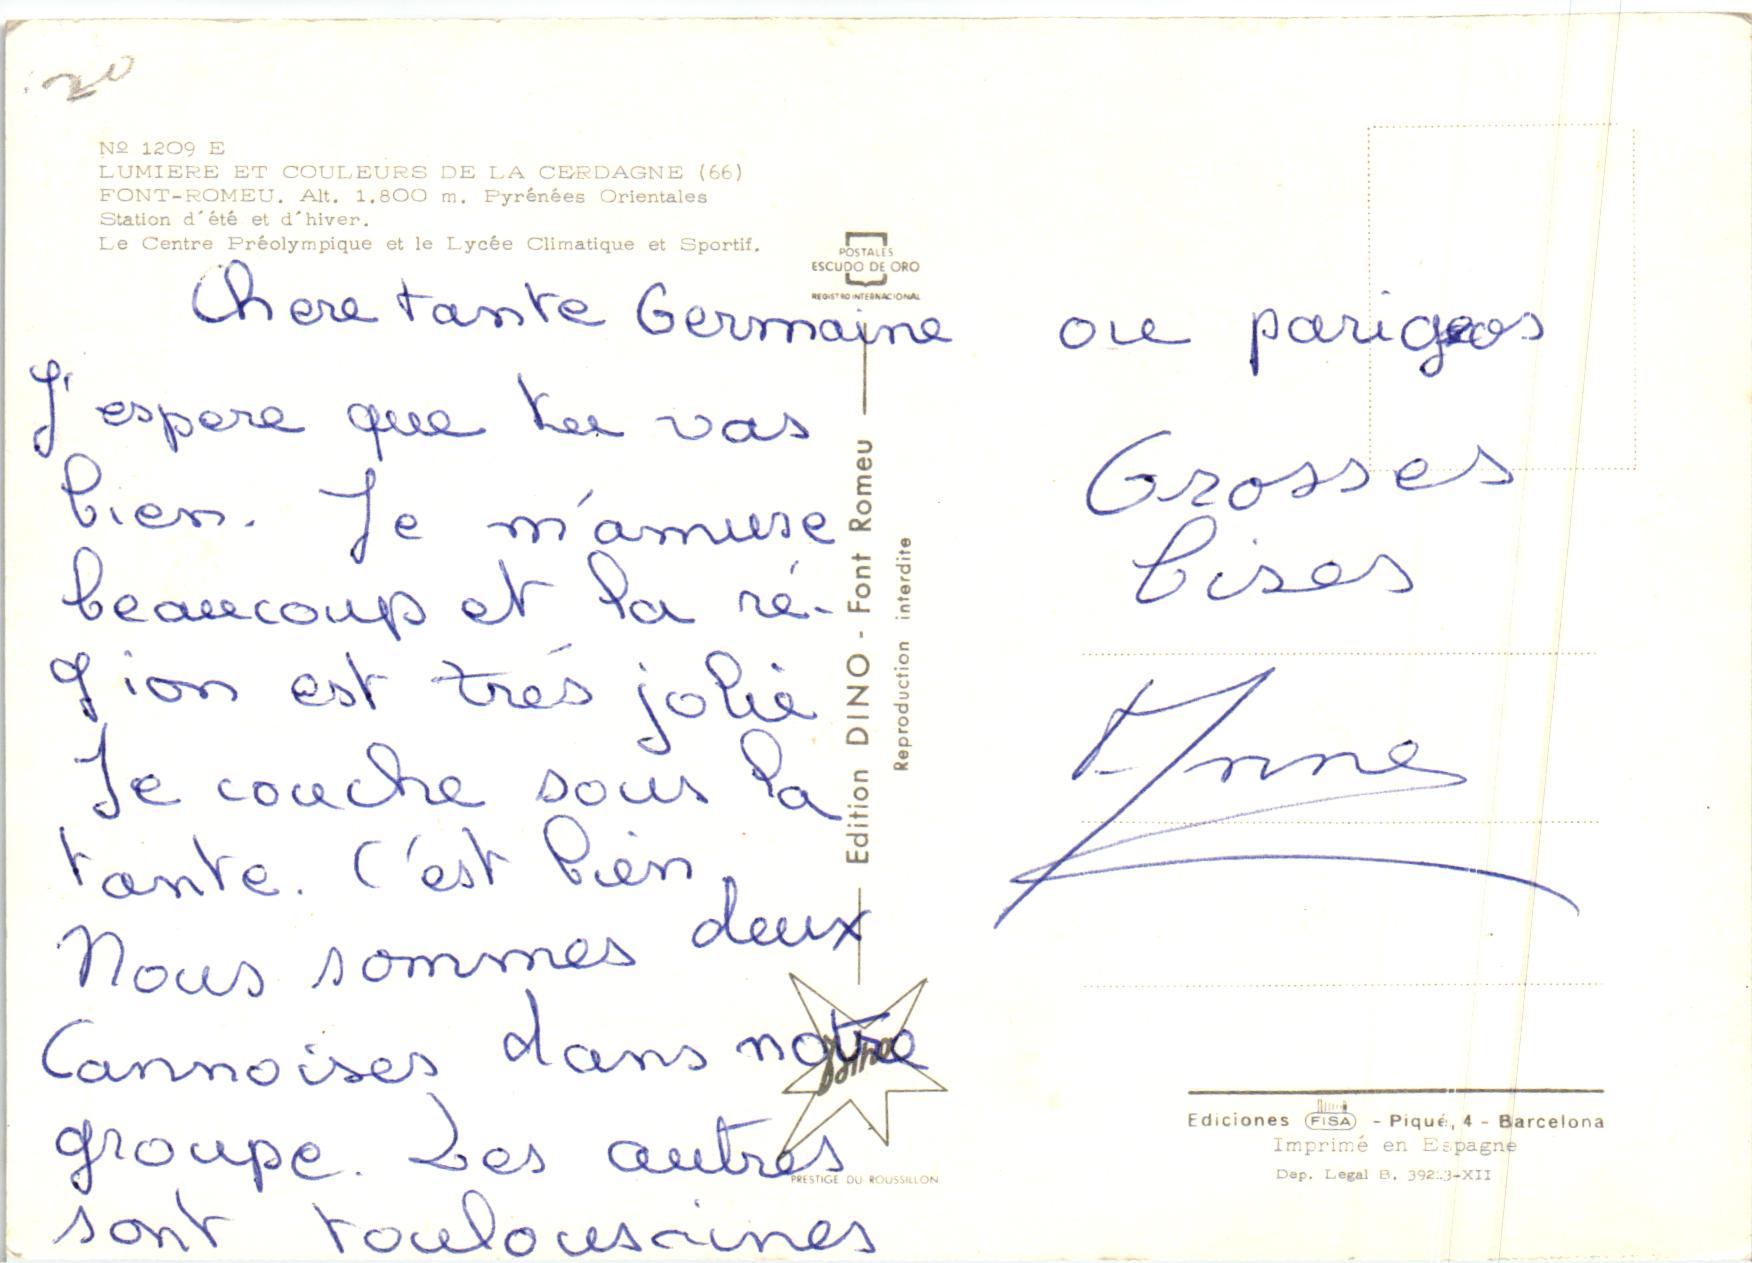 20
Nº 1209 E
LUMIERE ET COULEURS DE LA CERDAGNE (66)
FONT-ROMEU. Alt. 1.800 m. Pyrénées Orientales
Station d'été et d'hiver.
Le Centre Préolympique et le Lycée Climatique et Sportif.
Chere tante Germaine
J'espere que tu vas
bien. Je m'amuse
beaucoup et la ré-
gion est trés jolie
Je couche sous la
tante. C'est bien
Nous sommes deux
Cannoises dans notre
groupe. Les autres
sont toulousaines
POSTALES
ESCUDO DE ORO
REGISTRO INTERNACIONAL
Edition DINO - Font Romeu
Reproduction interdite
Dino
PRESTIGE DU ROUSSILLON
ou parigos
Grosses
bises
Anne
Ediciones FISA - Piqué, 4 - Barcelona
Imprimé en Espagne
Dep. Legal B. XII